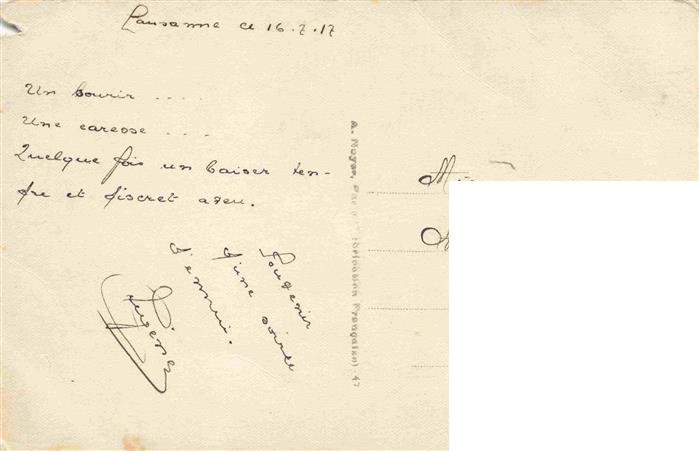 Lausanne ce 16.7.17
Un sourir ....
Une caresse ....
Quelque fois un baiser ten-
dre et discret aveu.
Souvenir
d'une soirée
d'ennui.
Eugène
A. Noyer, Paris (Fabrication Française) - 47